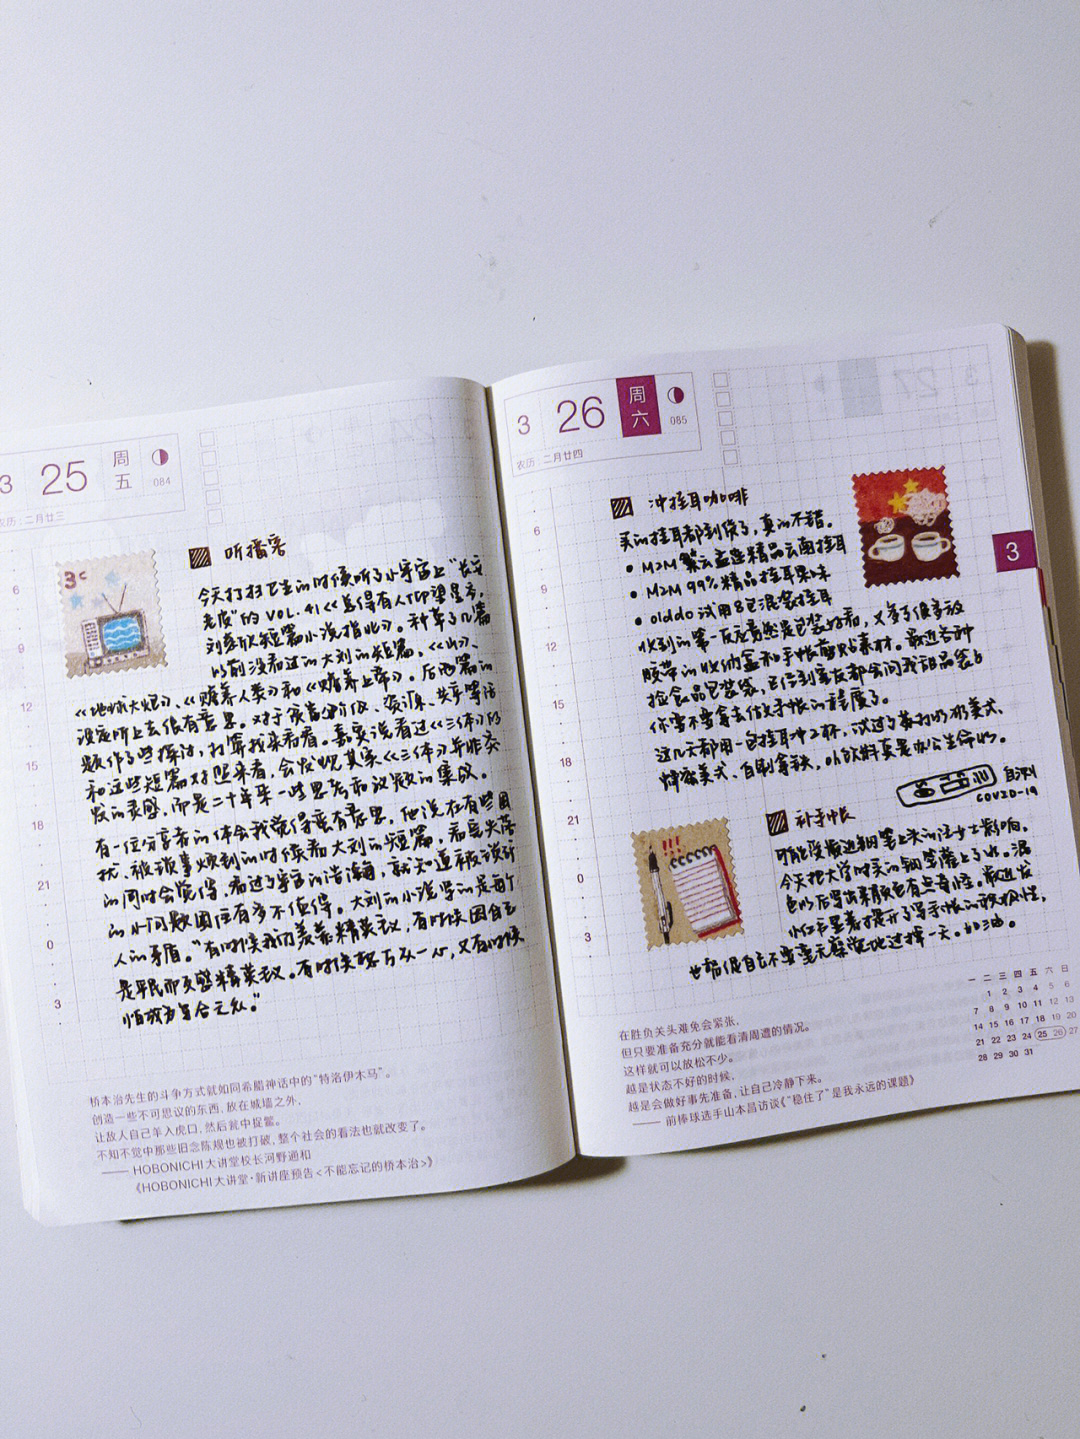 3 25 周五 084
农历：二月廿三
听播客
今天打扫卫生的时候听了小宇宙上“
的 VOL.41《总得有人仰望星空，
刘慈欣短篇小说指北》。种草了几篇
以前没看过的大刘的短篇。《山》、
《地球大炮》、《赡养人类》和《赡养上帝》。后两篇的
设定听上去很有意思。对于
题作了些探讨，打算找来看看。嘉宾说看过《三体》的
和这些短篇对照来看，会发现其实《三体》并非突
发的灵感，而是二十年来一些思考和议题的集成。
有一位分享者的体会我觉得蛮有意思。他说在有些困
扰，被琐事烦到的时候看大刘的短篇，看完失落
的同时会觉得，看过了宇宙的浩瀚，就知道被
的小问题困住有多不值得。大刘的小说
人的矛盾。“有时候我们羡慕精英主义，有时候因自己
是平民而反感精英主义。有时候
6
9
12
15
18
21
0
3
桥本治先生的斗争方式就如同希腊神话中的“特洛伊木马”。
创造一些不可思议的东西，放在城墙之外，
让敌人自己羊入虎口，然后瓮中捉鳖。
不知不觉中那些旧念陈规也被打破，整个社会的看法也就改变了。
—— HOBONICHI大讲堂校长河野通和
《HOBONICHI大讲堂·新讲座预告<不能忘记的桥本治>》
3 26 周六 085
农历：二月廿四
冲挂耳咖啡
买的挂耳都到货了，真的不错。
• M2M 精品云南挂耳
• M2M 99% 精品挂耳果味
• olddo 试用8包混装挂耳
收到的第一反应竟然是包装好看，又多了很多放
胶带的收纳盒和手帐剪贴素材。最近各种
捡食品包装袋，已经到室友都会问我甜品袋
你要不要拿去做手帐的程度了。
这几天都用一包挂耳冲2杯，试过了
美式、自制拿铁，水饮料真是办公生命
自测
COVID-19
补手帐
可能受最近钢笔上头的 影响，
今天把大学时买的钢笔灌上了水。混
色以后写出来颜色有点奇怪。最近发
小红书显著提升了写手帐的积极性，
也督促自己不要毫无察觉地过掉一天。加油。
6
9
12
15
18
21
0
3
3
一 二 三 四 五 六 日
1 2 3 4 5 6
7 8 9 10 11 12 13
14 15 16 17 18 19 20
21 22 23 24 25 26 27
28 29 30 31
在胜负关头难免会紧张，
但只要准备充分就能看清周遭的情况。
这样就可以放松不少。
越是状态不好的时候，
越是会做好事先准备，让自己冷静下来。
—— 前棒球选手山本昌访谈《“稳住了”是我永远的课题》